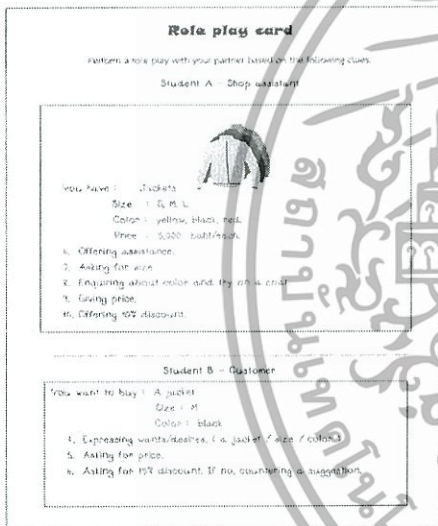 Role play card
Perform a role play with your partner based on the following clues.
Student A - Shop assistant
You have : Jackets
Size : S, M, L
Color : yellow, black, red.
Price : 5,000 baht/each.
6. Offering assistance.
7. Asking for size
8. Enquiring about color and try on a coat
9. Giving price.
10. Offering 10% discount.
Student B - Customer
You want to buy : A jacket
Size : M
Color : black
4. Expressing wants/desires. ( a jacket / size / color )
5. Asking for price.
6. Asking for 15% discount. If no, countering a suggestion.